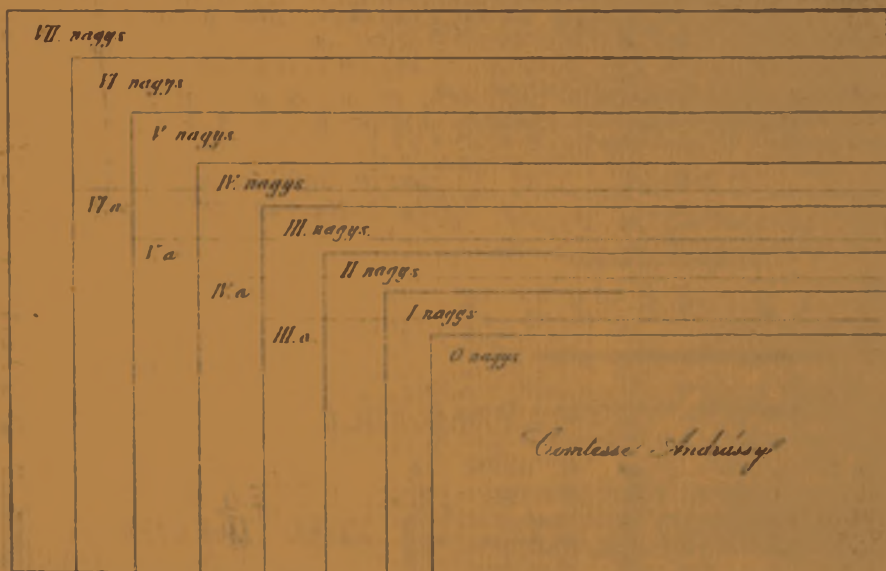 VII. nagys
VI nagys
V nagys
IV. nagys
VI.a
III. nagys.
V a
II nagys
IV. a
I nagys
III. a
0 nagys
Comtesse Andrássy